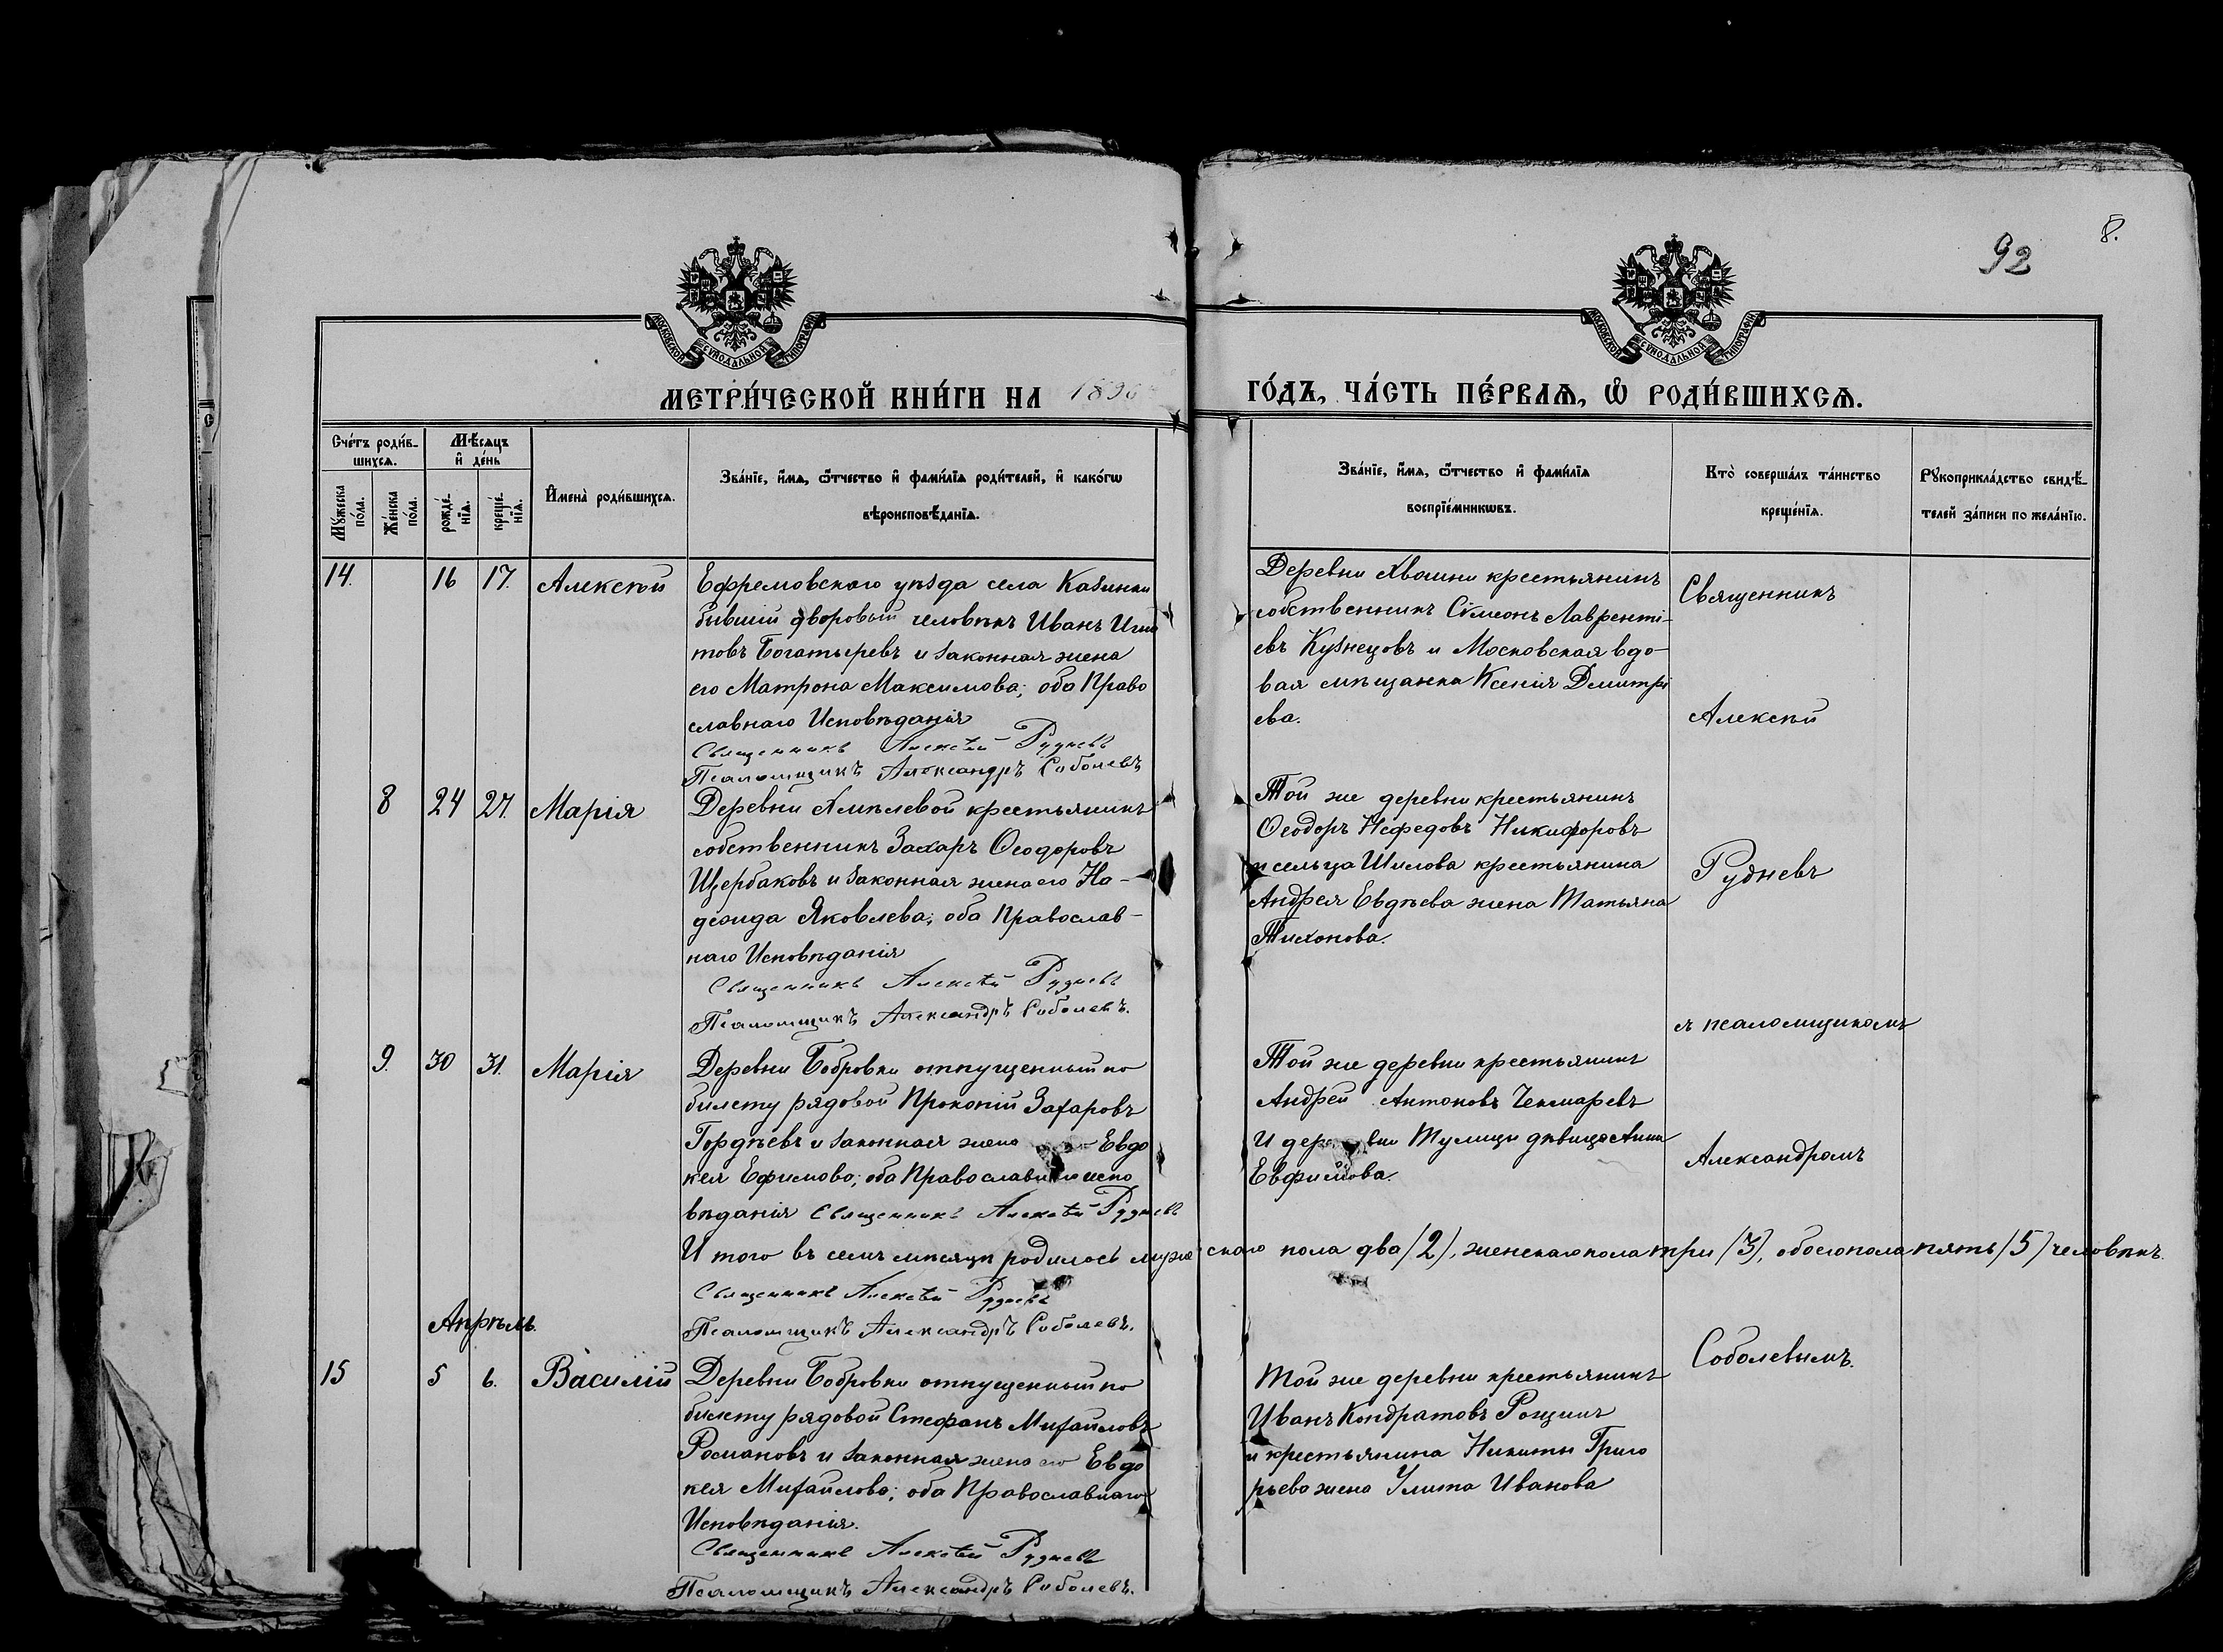 92
8.
МОСКОВСКОЙ СѴНОДАЛЬНОЙ ТИПОГРАФІИ
МОСКОВСКОЙ СѴНОДАЛЬНОЙ ТИПОГРАФІИ
МЕТРИ́ЧЕСКОЙ КНИ́ГИ НА 1890
ГО́ДЪ, ЧА́СТЬ ПЕ́РВАѦ, Ѡ РОДИ́ВШИХСѦ.
Сче́тъ роди́в-
шихсѧ.
Мꙋжеска по́ла.
Же́нска по́ла.
Мѣ́сѧцъ
и҆ де́нь
рожде́-
нїѧ.
креще́-
нїѧ.
И҆мена̀ роди́вшихсѧ.
Зва́нїе, и҆́мѧ, ѻ҆́тчество и҆ фами́лїѧ роди́телей, и҆ како́гѡ
вѣроисповѣ́данїѧ.
Зва́нїе, и҆́мѧ, ѻ҆́тчество и҆ фами́лїѧ
воспрїе́мникѡвъ.
Кто̀ соверша́лъ та́инство
креще́нїѧ.
Рꙋкоприкла́дство свидѣ́-
телей за́писи по жела́нїю.
14.
16
17.
Алексѣй
Ефремовскаго уѣзда села Казинки
бывшій дворовый человѣкъ Иванъ
товъ Богатыревъ и законная жена
его Матрона Максимова; оба Право
славнаго Исповѣданія
Священникъ Алексѣй Рудневъ
Псаломщикъ Александръ Соболевъ
Деревни крестьянинъ
собственникъ Сѵмеонъ Лаврентi-
евъ Кузнецовъ и Московская вдо-
вая мѣщанка Ксенія Димитрі
ева.
Священникъ
Алексѣй
8
24
27.
Марія
Деревни Хмѣлевой крестьянинъ
собственникъ Захаръ Ѳеодоровъ
Щербаковъ и законная жена его На-
дежда Яковлева; оба Православ-
наго Исповѣданія
Священникъ Алексѣй Рудневъ
Псаломщикъ Александръ Соболевъ.
Той же деревни крестьянинъ
Ѳеодоръ Нефедовъ Никифоровъ
и сельца Шилова крестьянина
Андрея Евдѣева жена Татьяна
Тихонова.
Рудневъ
съ псаломщикомъ
9.
30
31.
Марія
Деревни Бобровки отпущенный по
билету рядовой Прокопій Захаровъ
Гордѣевъ и законная жена Евдо
кея Ефимова; оба Православнаго испо
вѣданія Священникъ Алексѣй Рудневъ
Той же деревни крестьянинъ
Андрей Антоновъ Чекмаревъ
И деревни Тулицы дѣвица Анна
Евфимова.
Александромъ
И того въ семъ мѣсяцѣ родилось мужескаго пола два (2), женскаго пола три (3), обоего пола пять (5) человѣкъ.
Священникъ Алексѣй Рудневъ
Псаломщикъ Александръ Соболевъ.
Апрѣль.
15
5
6.
Василій
Деревни Бобровки отпущенный по
билету рядовой Стефанъ Михайловъ
Романовъ и законная жена его Евдо
кея Михайлова; оба Православнаго
Исповѣданія.
Священникъ Алексѣй Рудневъ
Псаломщикъ Александръ Соболевъ.
Той же деревни крестьянинъ
Иванъ Кондратовъ Рощинъ
и крестьянина Никиты Григо
рьева жена Улита Иванова
Соболевымъ.